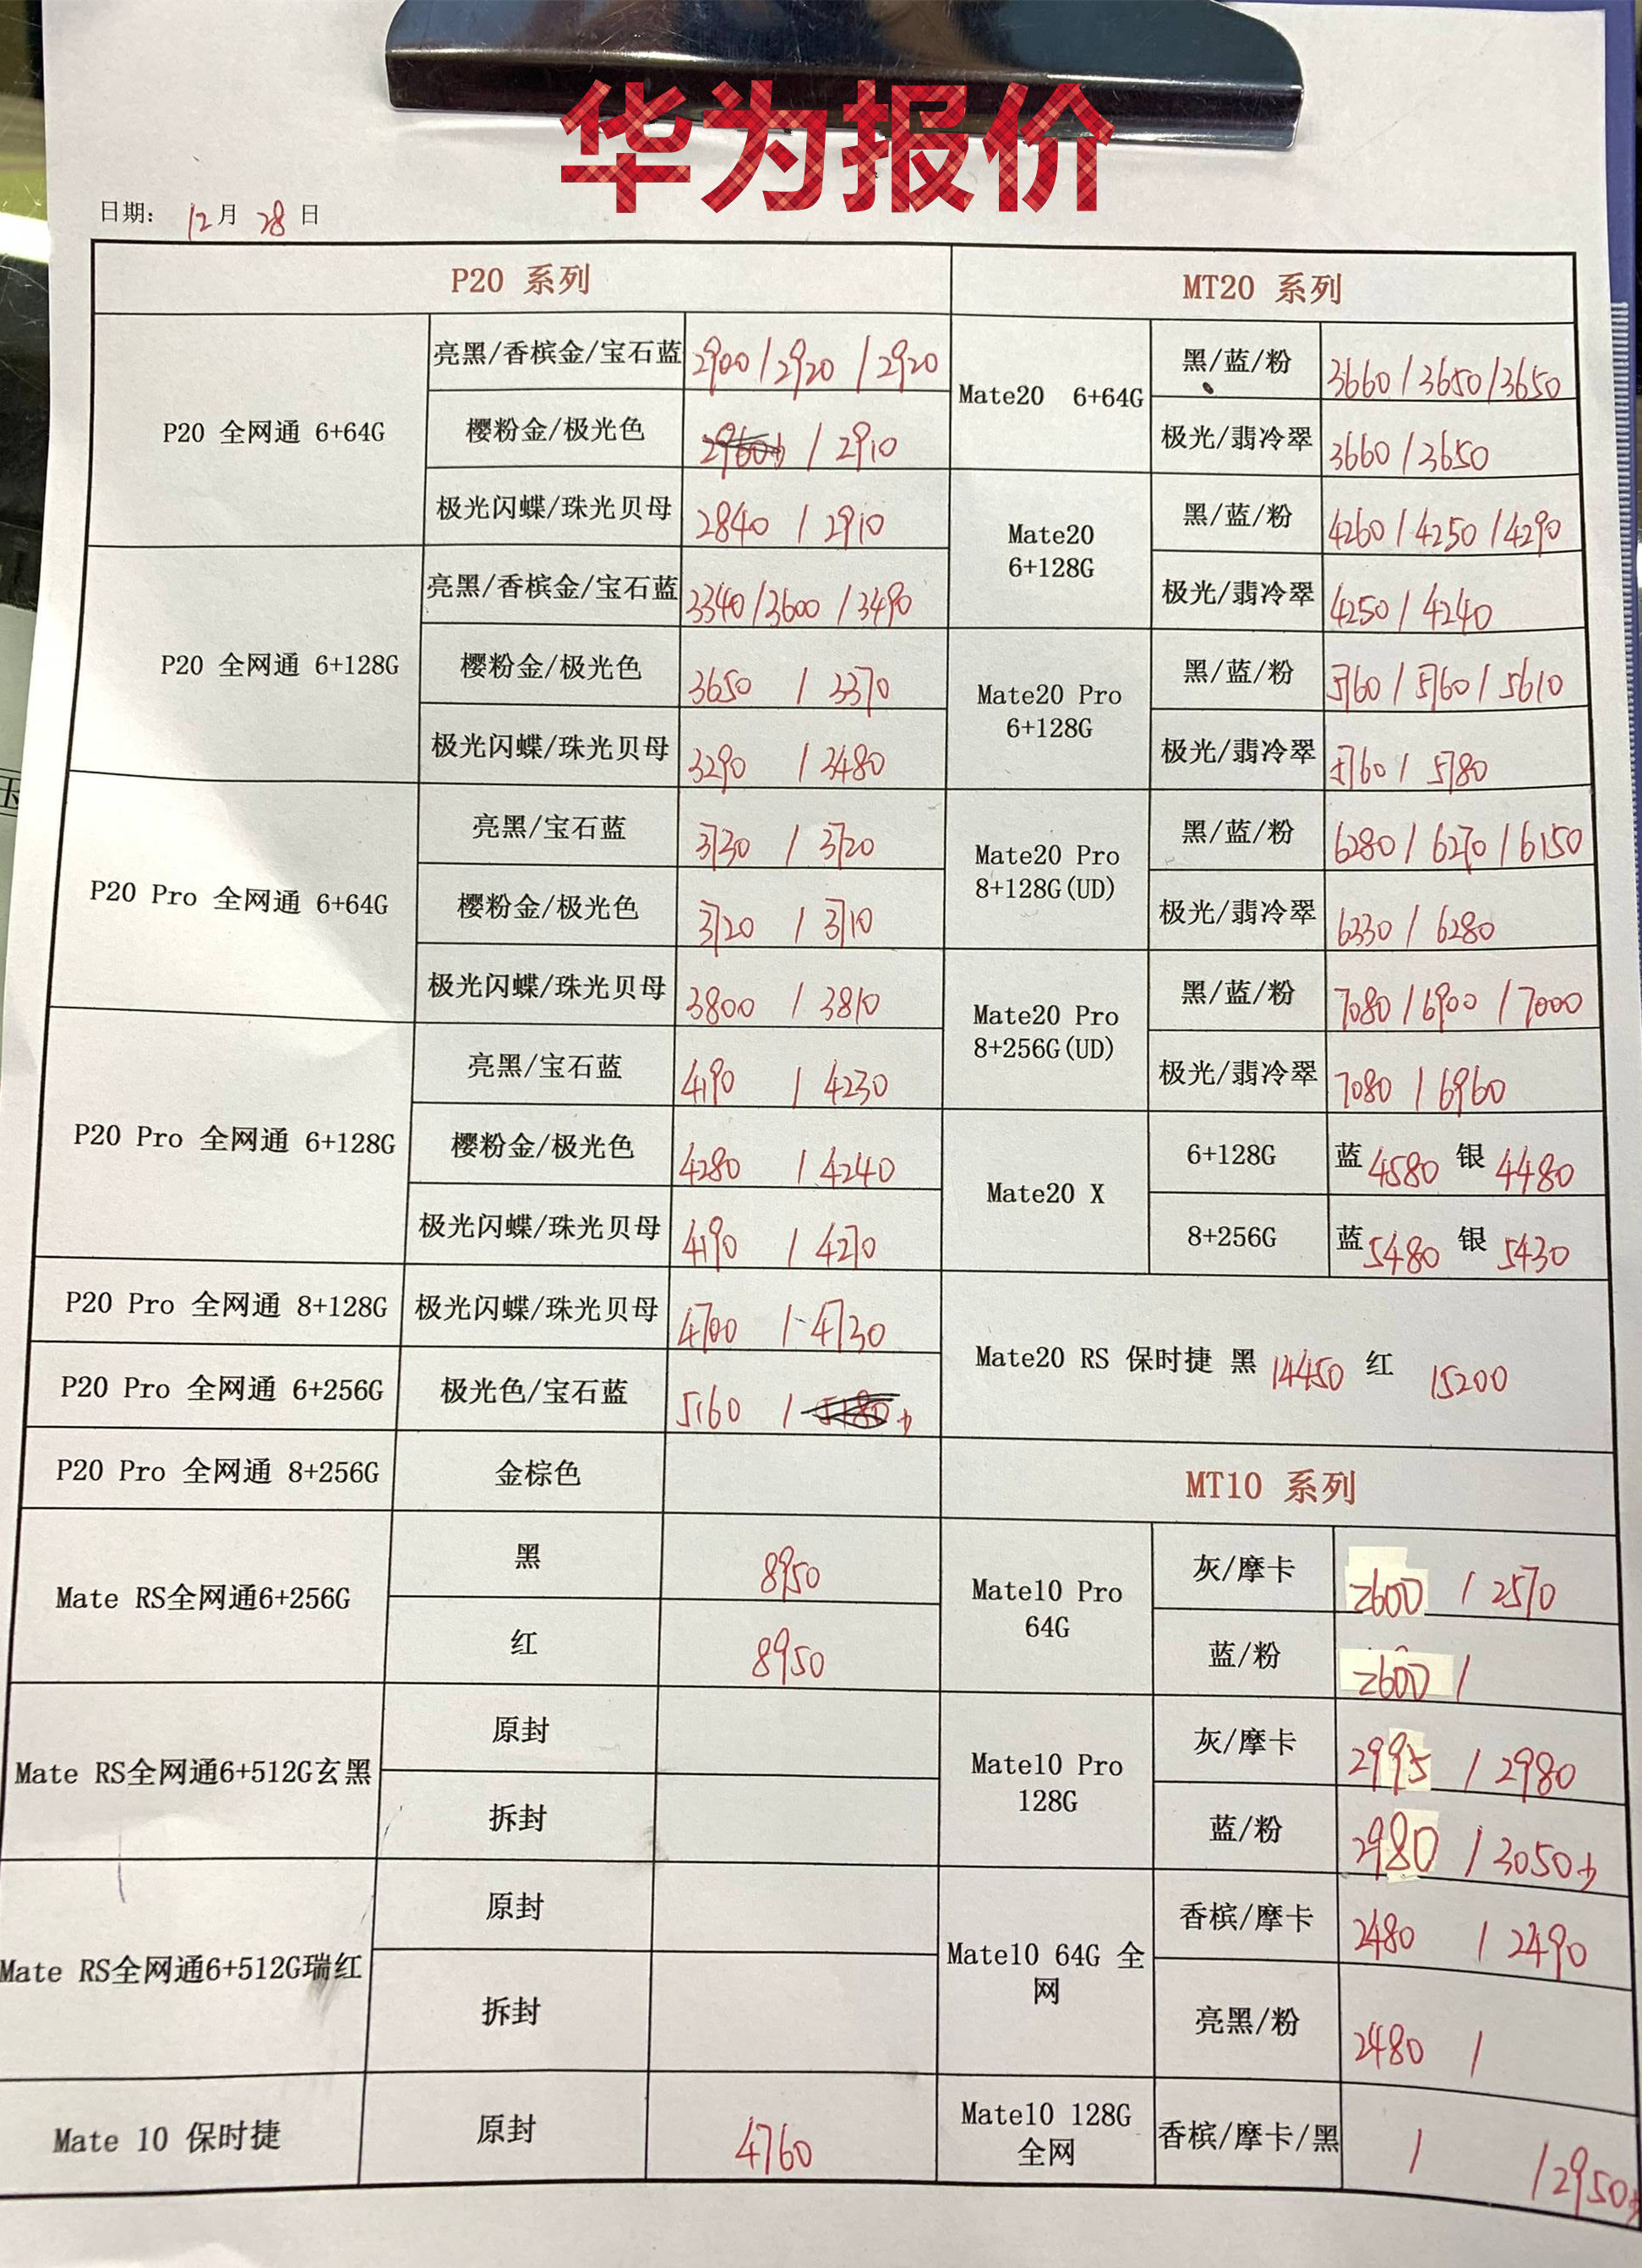 华为报价
日期: 12月 28日
P20 系列
P20 全网通 6+64G
亮黑/香槟金/宝石蓝 2900/2920/2920
樱粉金/极光色 /2910
极光闪蝶/珠光贝母 2840/2910
P20 全网通 6+128G
亮黑/香槟金/宝石蓝 3340/3600/3490
樱粉金/极光色 3650/3370
极光闪蝶/珠光贝母 3290/3480
P20 Pro 全网通 6+64G
亮黑/宝石蓝 3730/3720
樱粉金/极光色 3720/3710
极光闪蝶/珠光贝母 3800/3810
P20 Pro 全网通 6+128G
亮黑/宝石蓝 4190/4230
樱粉金/极光色 4280/4240
极光闪蝶/珠光贝母 4190/4270
P20 Pro 全网通 8+128G 极光闪蝶/珠光贝母 4700/4730
P20 Pro 全网通 6+256G 极光色/宝石蓝 5160/
P20 Pro 全网通 8+256G 金棕色
Mate RS全网通6+256G
黑 8950
红 8950
Mate RS全网通6+512G玄黑
原封
拆封
Mate RS全网通6+512G瑞红
原封
拆封
Mate 10 保时捷 原封 4760
MT20 系列
Mate20 6+64G
黑/蓝/粉 3660/3650/3650
极光/翡冷翠 3660/3650
Mate20
6+128G
黑/蓝/粉 4260/4250/4290
极光/翡冷翠 4250/4240
Mate20 Pro
6+128G
黑/蓝/粉 5760/5760/5610
极光/翡冷翠 5760/5780
Mate20 Pro
8+128G(UD)
黑/蓝/粉 6280/6270/6150
极光/翡冷翠 6330/6280
Mate20 Pro
8+256G(UD)
黑/蓝/粉 7080/6900/7000
极光/翡冷翠 7080/6960
Mate20 X
6+128G 蓝 4580 银 4480
8+256G 蓝 5480 银 5430
Mate20 RS 保时捷 黑 14450 红 15200
MT10 系列
Mate10 Pro
64G
灰/摩卡 2600/2570
蓝/粉 2600/
Mate10 Pro
128G
灰/摩卡 2995/2980
蓝/粉 2980/3050少
Mate10 64G 全
网
香槟/摩卡 2480/2490
亮黑/粉 2480/
Mate10 128G
全网
香槟/摩卡/黑 / /2950少